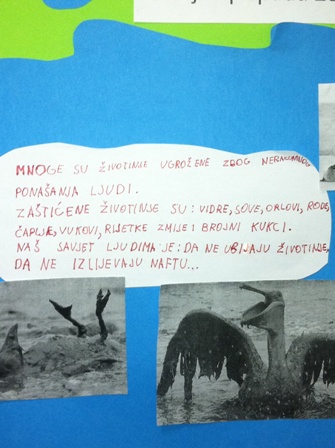 MNOGE SU ŽIVOTINJE UGROŽENE ZBOG NERAZUMNOG
PONAŠANJA LJUDI.
ZAŠTIĆENE ŽIVOTINJE SU: VIDRE, SOVE, ORLOVI, RODE,
ČAPLJE, VUKOVI, RIJETKE ZMIJE I BROJNI KUKCI.
NAŠ SAVJET LJUDIMA JE: DA NE UBIJAJU ŽIVOTINJE,
DA NE IZLIJEVAJU NAFTU...